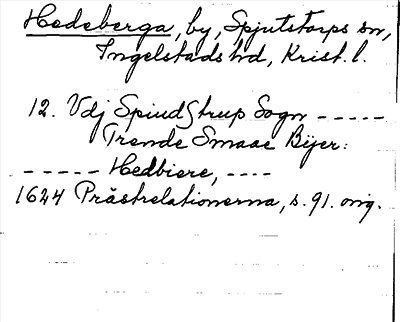 Hedeberga, by, Spjutstorps sn,
Ingelstads hd, Krist. l.
12. Vdj Spiudstrup Sogn -----
Trende Smaae Bÿer:
----- Hedbiere, ----
1624 Prästrelationerna, s. 91. orig.